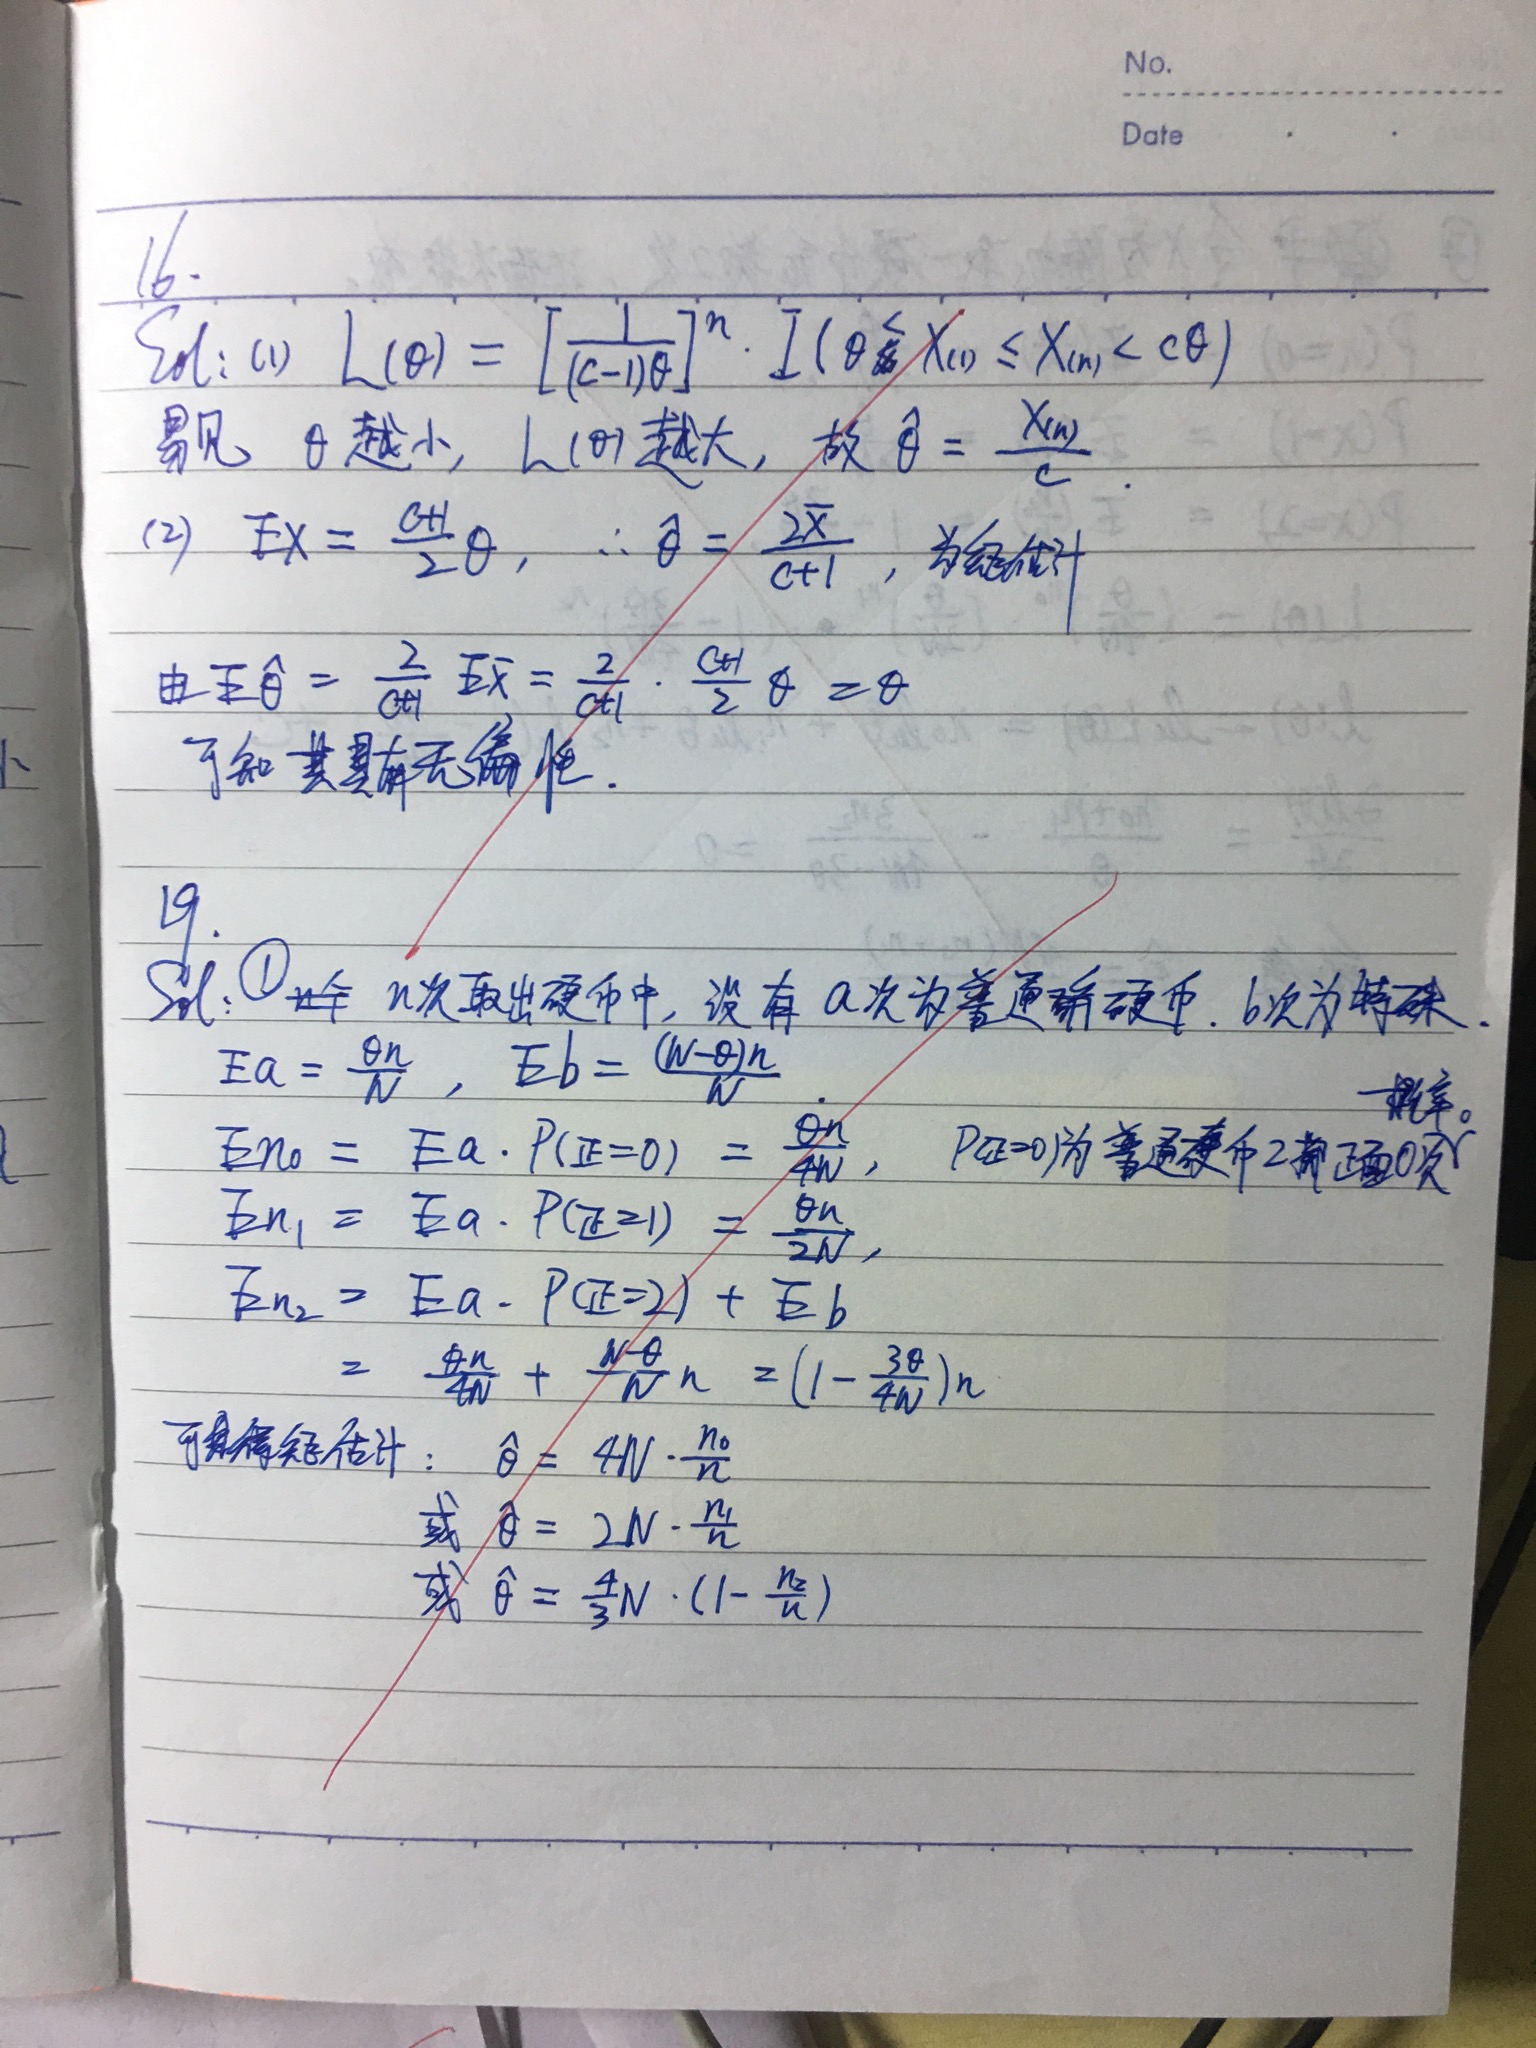 No.
Date
16.
Sol: (1) L(θ) = [1/((c-1)θ)]^n · I(θ ≤ X(1) ≤ X(n) < cθ)
易见 θ越小, L(θ)越大, 故 θ̂ = X(n)/c.
(2) EX = (c+1)/2 θ, ∴ θ̂ = 2X̄/(c+1), 为矩估计
由Eθ̂ = 2/(c+1) EX̄ = 2/(c+1) · (c+1)/2 θ = θ
可知其具有无偏性.
19.
Sol: ① n次取出硬币中, 设有a次为普通硬币. b次为特殊.
Ea = θn/N, Eb = (N-θ)n/N.
概率。
En₀ = Ea · P(正=0) = θn/4N, P(正=0)为普通硬币2掷正面0次
En₁ = Ea · P(正=1) = θn/2N,
En₂ = Ea · P(正=2) + Eb
= θn/4N + (N-θ)/N n = (1 - 3θ/4N)n
可得矩估计: θ̂ = 4N · n₀/n
或 θ̂ = 2N · n₁/n
或 θ̂ = 4/3 N · (1 - n₂/n)